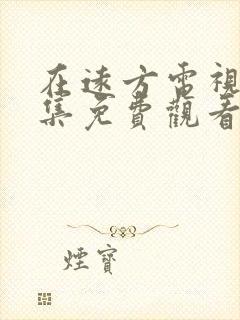 在遠方電視
集免費觀看
煙寶